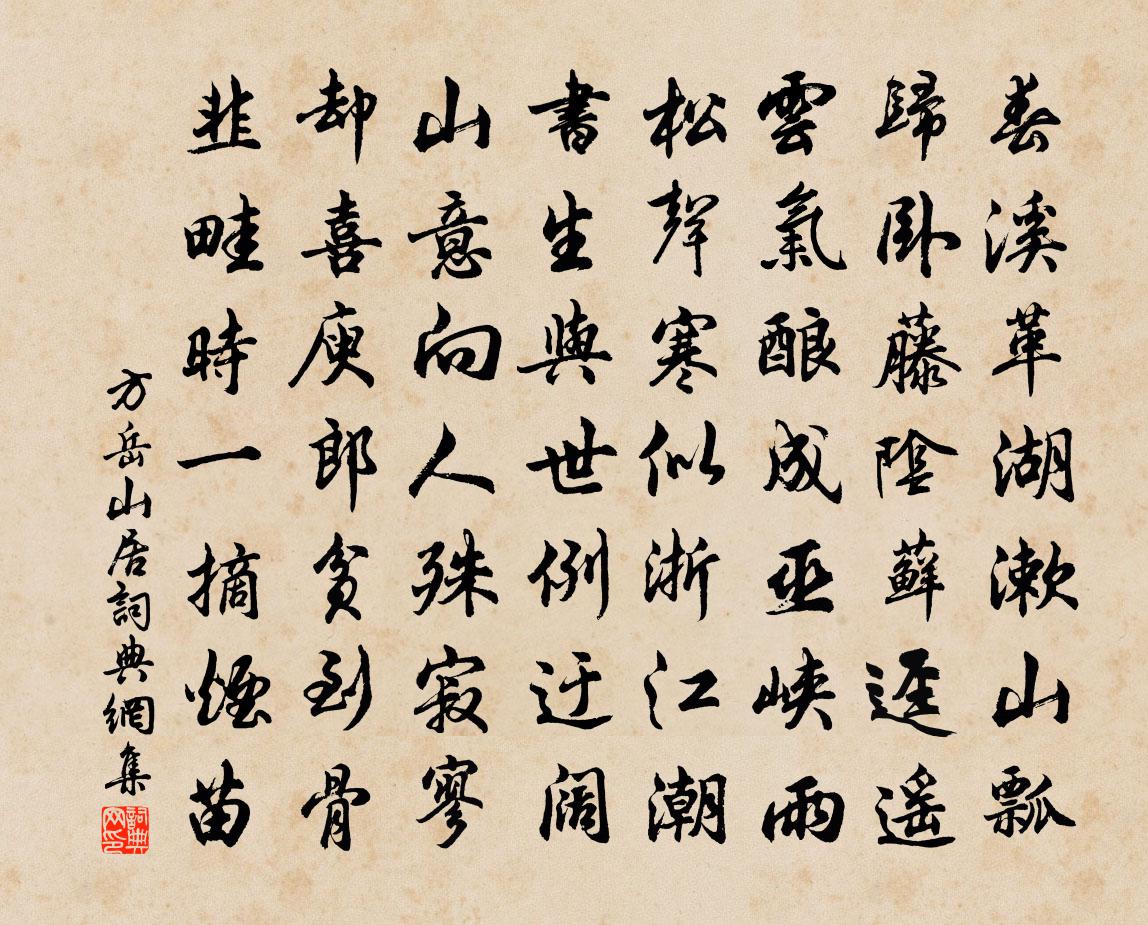 春溪革湖漱山瓢
歸卧藤陰蘚逕遥
雲氣酿成巫峽雨
松聲寒似浙江潮
書生與世例迂闊
山意向人殊寂寥
却喜庾郎貧到骨
韭畦時一摘煙苗
方岳山居詞典網集
詞典
网印